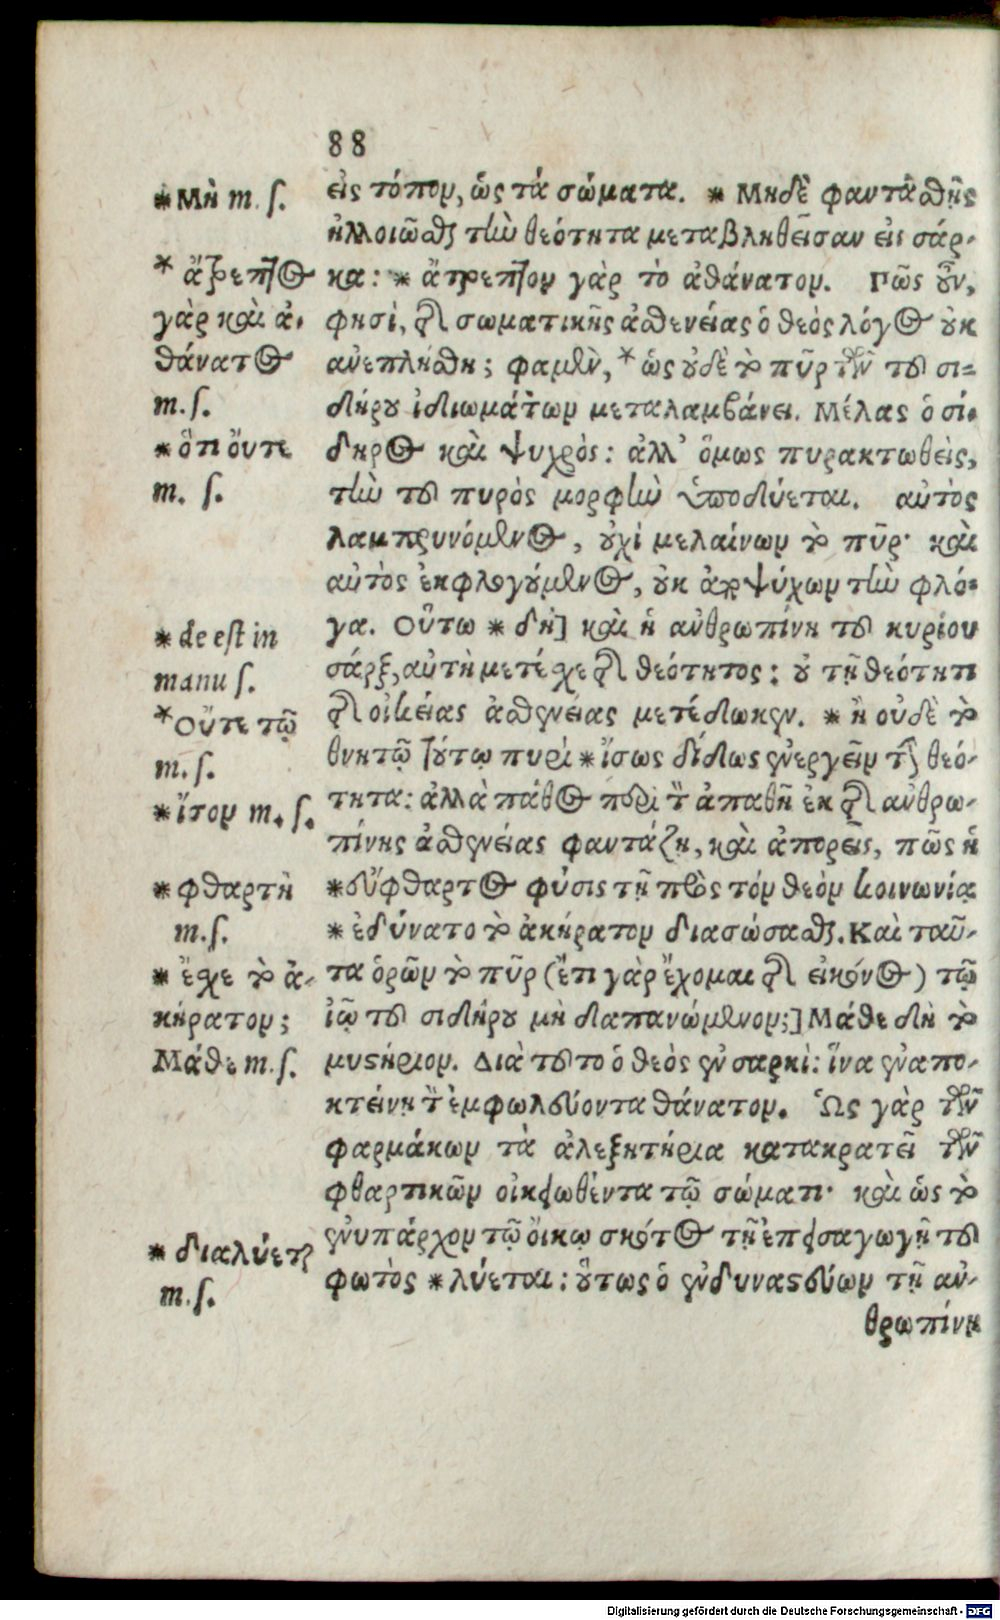 88
εἰς τόπον, ὡς τὰ σώματα. * Μηδὲ φαντασθῇς
ἠλλοιῶσθαι τὴν θεότητα μεταβληθεῖσαν εἰς σάρ-
κα: * ἄτρεπτον γὰρ τὸ ἀθάνατον. Πῶς οὖν,
φησὶ, τῆς σωματικῆς ἀσθενείας ὁ θεὸς λόγος οὐκ
ἀνεπλήσθη; φαμὲν, * ὡς οὐδὲ τὸ πῦρ τῶν τοῦ σι-
δήρου ἰδιωμάτων μεταλαμβάνει. Μέλας ὁ σί-
δηρος καὶ ψυχρὸς: ἀλλ' ὅμως πυρακτωθεὶς,
τὴν τοῦ πυρὸς μορφὴν ὑποδύεται. αὐτὸς
λαμπρυνόμενος, οὐχὶ μελαίνων τὸ πῦρ· καὶ
αὐτὸς ἐκφλογούμενος, οὐκ ἀποψύχων τὴν φλό-
γα. Οὕτω * δὴ] καὶ ἡ ἀνθρωπίνη τοῦ κυρίου
σάρξ, αὐτὴ μετέχε τῆς θεότητος: οὐ τῇ θεότητι
τῆς οἰκείας ἀσθενείας μετέδωκεν. * ἢ οὐδὲ τὸ
θνητῷ τούτῳ πυρὶ * ἴσως δίδως ἐνεργεῖν τὴν θεό-
τητα: ἀλλὰ πάθος περὶ τὸν ἀπαθῆ ἐκ τῆς ἀνθρω-
πίνης ἀσθενείας φαντάζῃ, καὶ ἀπορεῖς, πῶς ἡ
* εὔφθαρτος φύσις τῇ πρὸς τὸν θεὸν κοινωνίᾳ
* ἐδύνατο τὸ ἀκήρατον διασώσασθαι. Καὶ ταῦ-
τα ὁρῶν τὸ πῦρ (ἔτι γὰρ ἔχομαι τῆς εἰκόνος) τῷ
ἰῷ τοῦ σιδήρου μὴ δαπανώμενον;] Μάθε δὴ τὸ
μυστήριον. Διὰ τοῦτο ὁ θεὸς ἐν σαρκὶ: ἵνα ἐναπο-
κτείνῃ τὸν ἐμφωλεύοντα θάνατον. Ὡς γὰρ τῶν
φαρμάκων τὰ ἀλεξητήρια κατακρατεῖ τῶν
φθαρτικῶν οἰκειωθέντα τῷ σώματι· καὶ ὡς τὸ
ἐνυπάρχον τῷ οἴκῳ σκότος τῇ ἐπεισαγωγῇ τοῦ
φωτὸς * λύεται: οὕτως ὁ ἐνδυναστεύων τῇ ἀν-
θρωπίνῃ
* Μὴ m. s.
* ἄτρεπτος
γὰρ καὶ ἀ-
θάνατος
m. s.
* ὅτι οὔτε
m. s.
* de est in
manu s.
* Οὔτε τῷ
m. s.
* ἴτον m. s.
* φθαρτὴ
m. s.
* ἔχε τὸ ἀ-
κήρατον;
Μάθε m. s.
* διαλύεται
m. s.
Digitalisierung gefördert durch die Deutsche Forschungsgemeinschaft - DFG